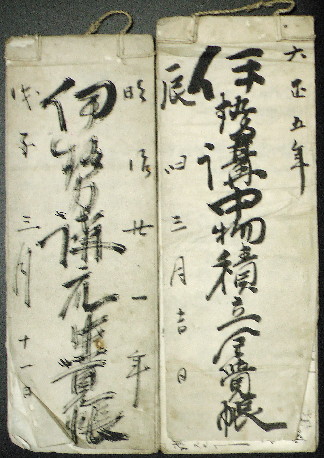 大正五年
伊勢講中物積立金帳
辰旧三月吉日
明治廿一年
伊勢講元帳
戊子三月十一日